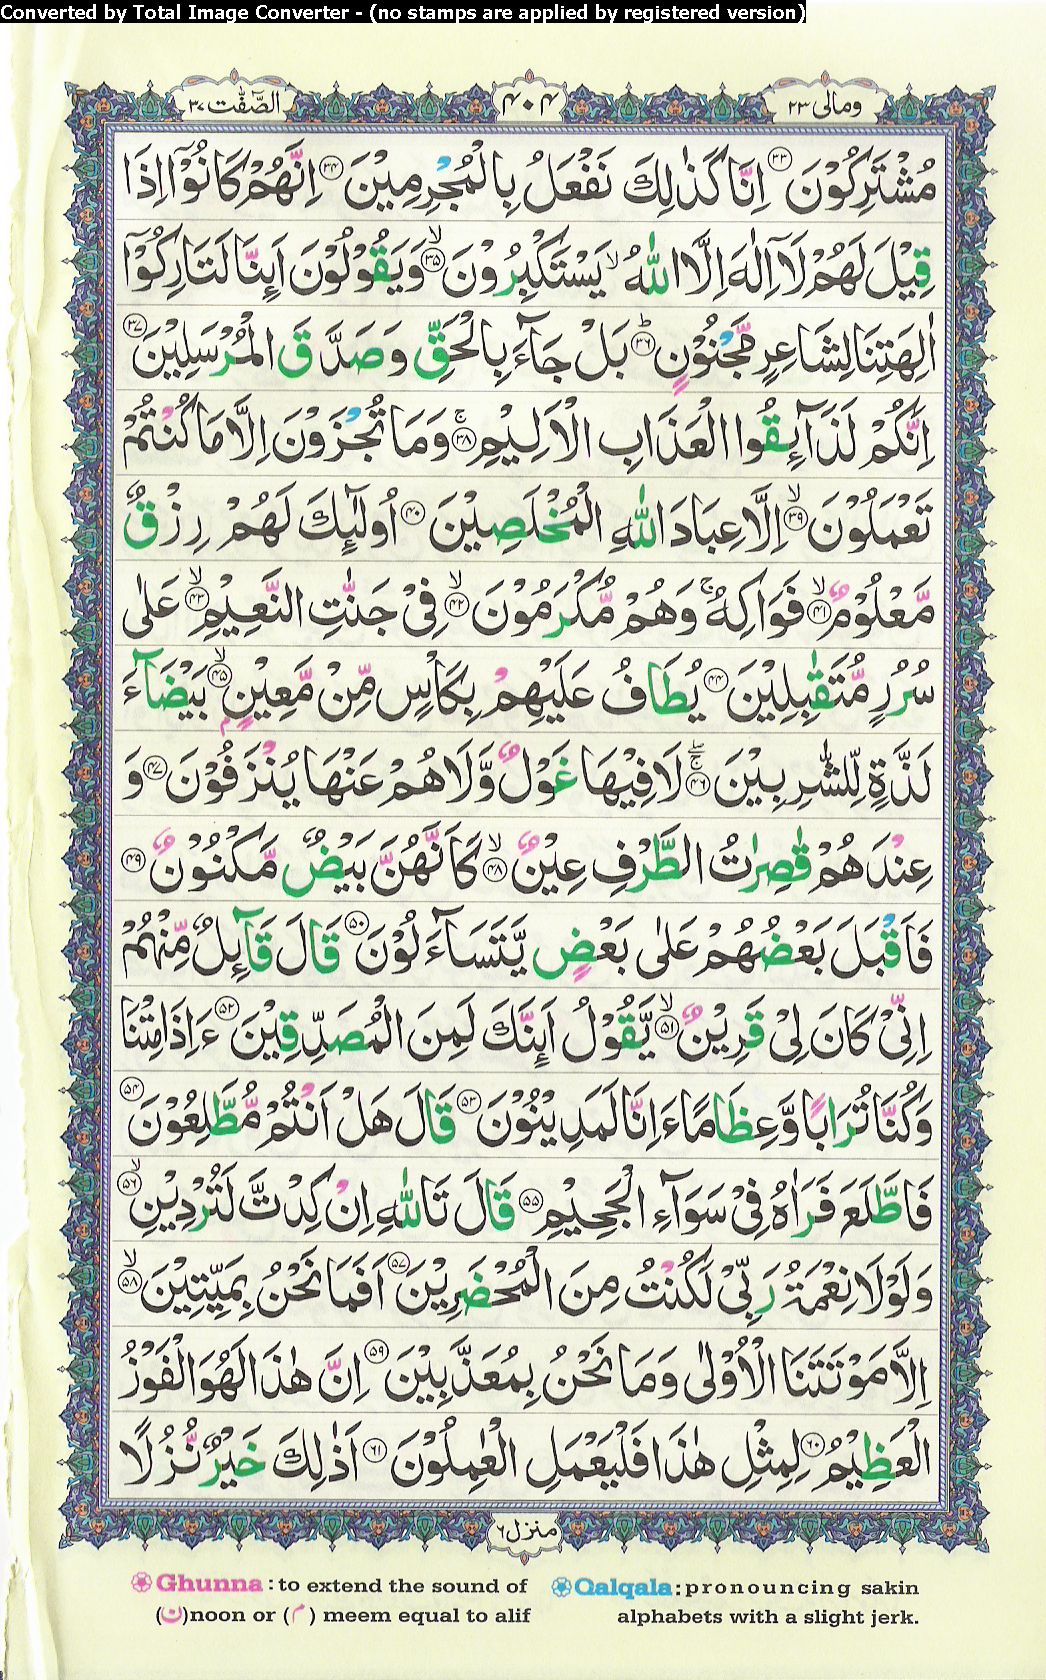 Converted by Total Image Converter - (no stamps are applied by registered version)
ومالی ۲۳ ۴۰۴ الصّٰٓفّٰت ۳۷
مُشْتَرِكُوْنَ ۳۳ اِنَّا كَذٰلِكَ نَفْعَلُ بِالْمُجْرِمِيْنَ ۳۴ اِنَّهُمْ كَانُوْۤا اِذَا
قِيْلَ لَهُمْ لَاۤ اِلٰهَ اِلَّا اللّٰهُ ۙ يَسْتَكْبِرُوْنَ ۙ ۳۵ وَيَقُوْلُوْنَ اَىِٕنَّا لَتَارِكُوْۤا
اٰلِهَتِنَا لِشَاعِرٍ مَّجْنُوْنٍ ؕ ۳۶ بَلْ جَآءَ بِالْحَقِّ وَصَدَّقَ الْمُرْسَلِيْنَ ۳۷
اِنَّكُمْ لَذَآىِٕقُوا الْعَذَابِ الْاَلِيْمِ ۚ ۳۸ وَمَا تُجْزَوْنَ اِلَّا مَا كُنْتُمْ
تَعْمَلُوْنَ ۙ ۳۹ اِلَّا عِبَادَ اللّٰهِ الْمُخْلَصِيْنَ ۴۰ اُولٰٓىِٕكَ لَهُمْ رِزْقٌ
مَّعْلُوْمٌ ۙ ۴۱ فَوَاكِهُ ۚ وَهُمْ مُّكْرَمُوْنَ ۙ ۴۲ فِيْ جَنّٰتِ النَّعِيْمِ ۙ ۴۳ عَلٰى
سُرُرٍ مُّتَقٰبِلِيْنَ ۴۴ يُطَافُ عَلَيْهِمْ بِكَاْسٍ مِّنْ مَّعِيْنٍۭ ۙ ۴۵ بَيْضَآءَ
لَذَّةٍ لِّلشّٰرِبِيْنَ ۚۖ ۴۶ لَا فِيْهَا غَوْلٌ وَّلَا هُمْ عَنْهَا يُنْزَفُوْنَ ۴۷ وَ
عِنْدَهُمْ قٰصِرٰتُ الطَّرْفِ عِيْنٌ ۙ ۴۸ كَاَنَّهُنَّ بَيْضٌ مَّكْنُوْنٌ ۴۹
فَاَقْبَلَ بَعْضُهُمْ عَلٰى بَعْضٍ يَّتَسَآءَلُوْنَ ۵۰ قَالَ قَآىِٕلٌ مِّنْهُمْ
اِنِّيْ كَانَ لِيْ قَرِيْنٌ ۙ ۵۱ يَّقُوْلُ اَىِٕنَّكَ لَمِنَ الْمُصَدِّقِيْنَ ۵۲ ءَاِذَا مِتْنَا
وَكُنَّا تُرَابًا وَّعِظَامًا ءَاِنَّا لَمَدِيْنُوْنَ ۵۳ قَالَ هَلْ اَنْتُمْ مُّطَّلِعُوْنَ ۵۴
فَاطَّلَعَ فَرَاٰهُ فِيْ سَوَآءِ الْجَحِيْمِ ۵۵ قَالَ تَاللّٰهِ اِنْ كِدْتَّ لَتُرْدِيْنِ ۙ ۵۶
وَلَوْلَا نِعْمَةُ رَبِّيْ لَكُنْتُ مِنَ الْمُحْضَرِيْنَ ۵۷ اَفَمَا نَحْنُ بِمَيِّتِيْنَ ۙ ۵۸
اِلَّا مَوْتَتَنَا الْاُوْلٰى وَمَا نَحْنُ بِمُعَذَّبِيْنَ ۵۹ اِنَّ هٰذَا لَهُوَ الْفَوْزُ
الْعَظِيْمُ ۶۰ لِمِثْلِ هٰذَا فَلْيَعْمَلِ الْعٰمِلُوْنَ ۶۱ اَذٰلِكَ خَيْرٌ نُّزُلًا
منزل ۶
Ghunna : to extend the sound of
(ن)noon or (م) meem equal to alif
Qalqala : pronouncing sakin
alphabets with a slight jerk.